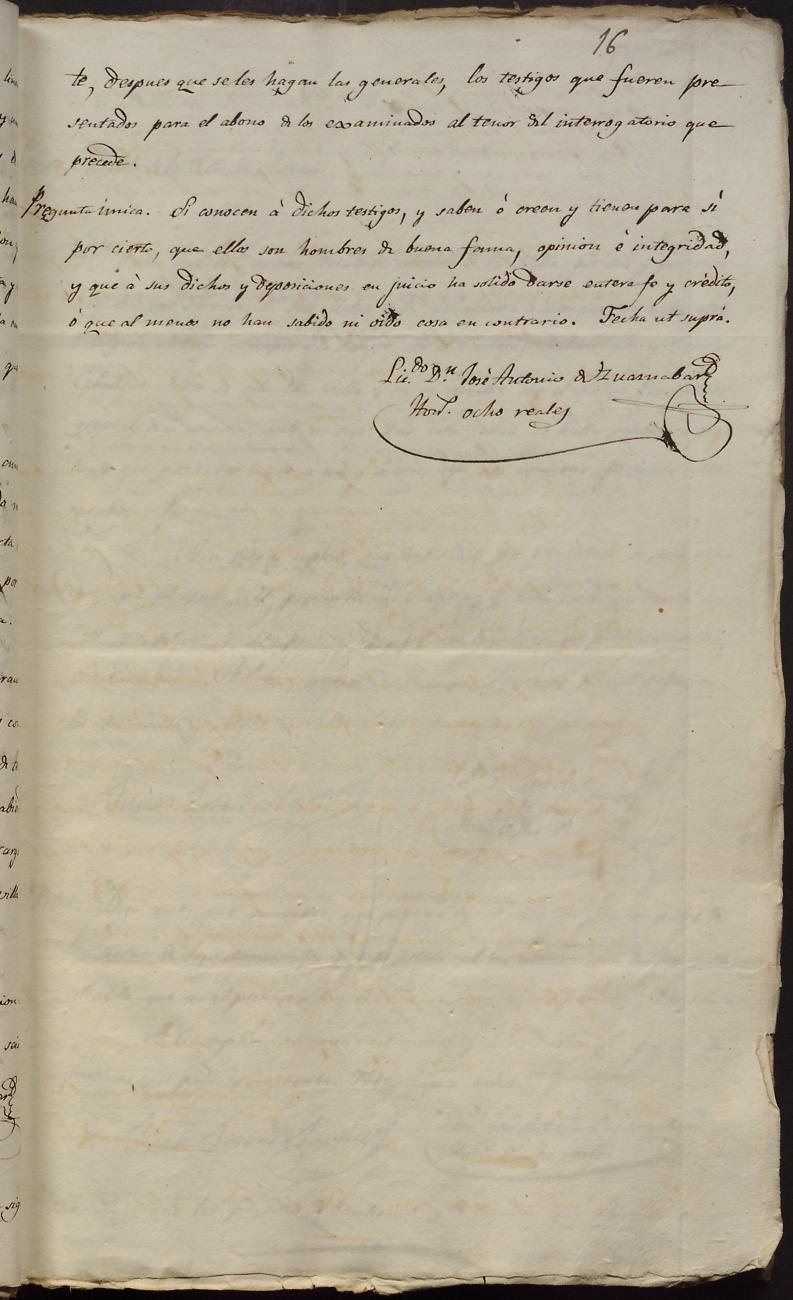 16
te, despues que se les hagan las generales, los testigos que fueren pre-
sentados para el abono de los examinados al tenor del interrogatorio que
precede.
Pregunta única. Si conocen à dichos testigos, y saben ó creen y tienen para si
por cierto, que ellos son hombres de buena fama, opinion è integridad,
y que à sus dichos y deposiciones en juicio ha solido darse entera fe y crédito,
ó que al menos no han sabido ni oido cosa en contrario. Fecha ut suprà.
Lic.do D.n José Antonio de Yzuarnabar
Hon.s ocho reales